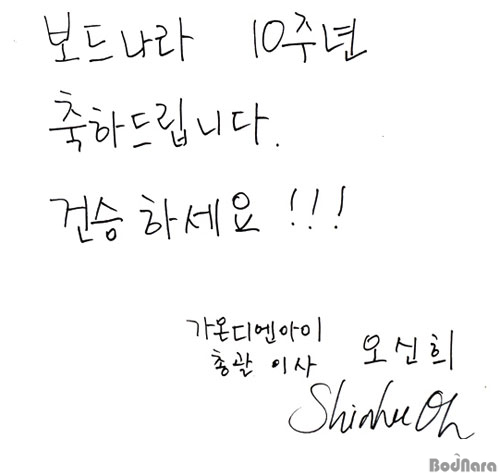 보드나라 10주년
축하드립니다.
건승하세요!!!
가온디엔아이
총괄 이사 오신희
Shinhee Oh
BodNara